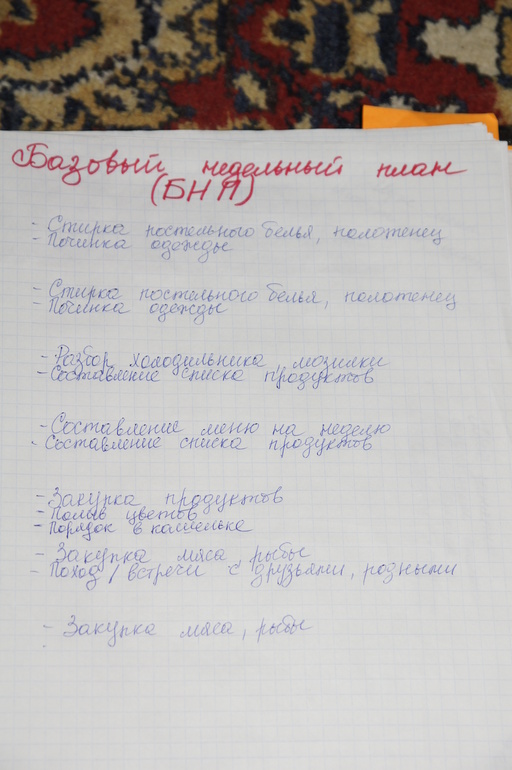 Базовый недельный план
(БНП)
- Стирка постельного белья, полотенец
- Починка одежды
- Стирка постельного белья, полотенец
- Починка одежды
- Разбор холодильника, мозилки
- Составление списка продуктов
- Составление меню на неделю
- Составление списка продуктов
- Закупка продуктов
- Полив цветов
- Порядок в кошельке
- Закупка мяса, рыбы
- Поход/встречи с друзьями, родными
- Закупка мяса, рыбы